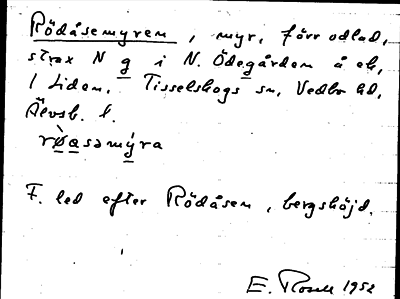 Rödåsemyren, myr, förr odlad,
strax N g i N. Ödegården å ek,
1 Liden. Tisselskogs sn, Vedbo hd,
Älvsb. l.
rø̀asamýra
F. led efter Rödåsen, bergshöjd.
E. Rosell 1952